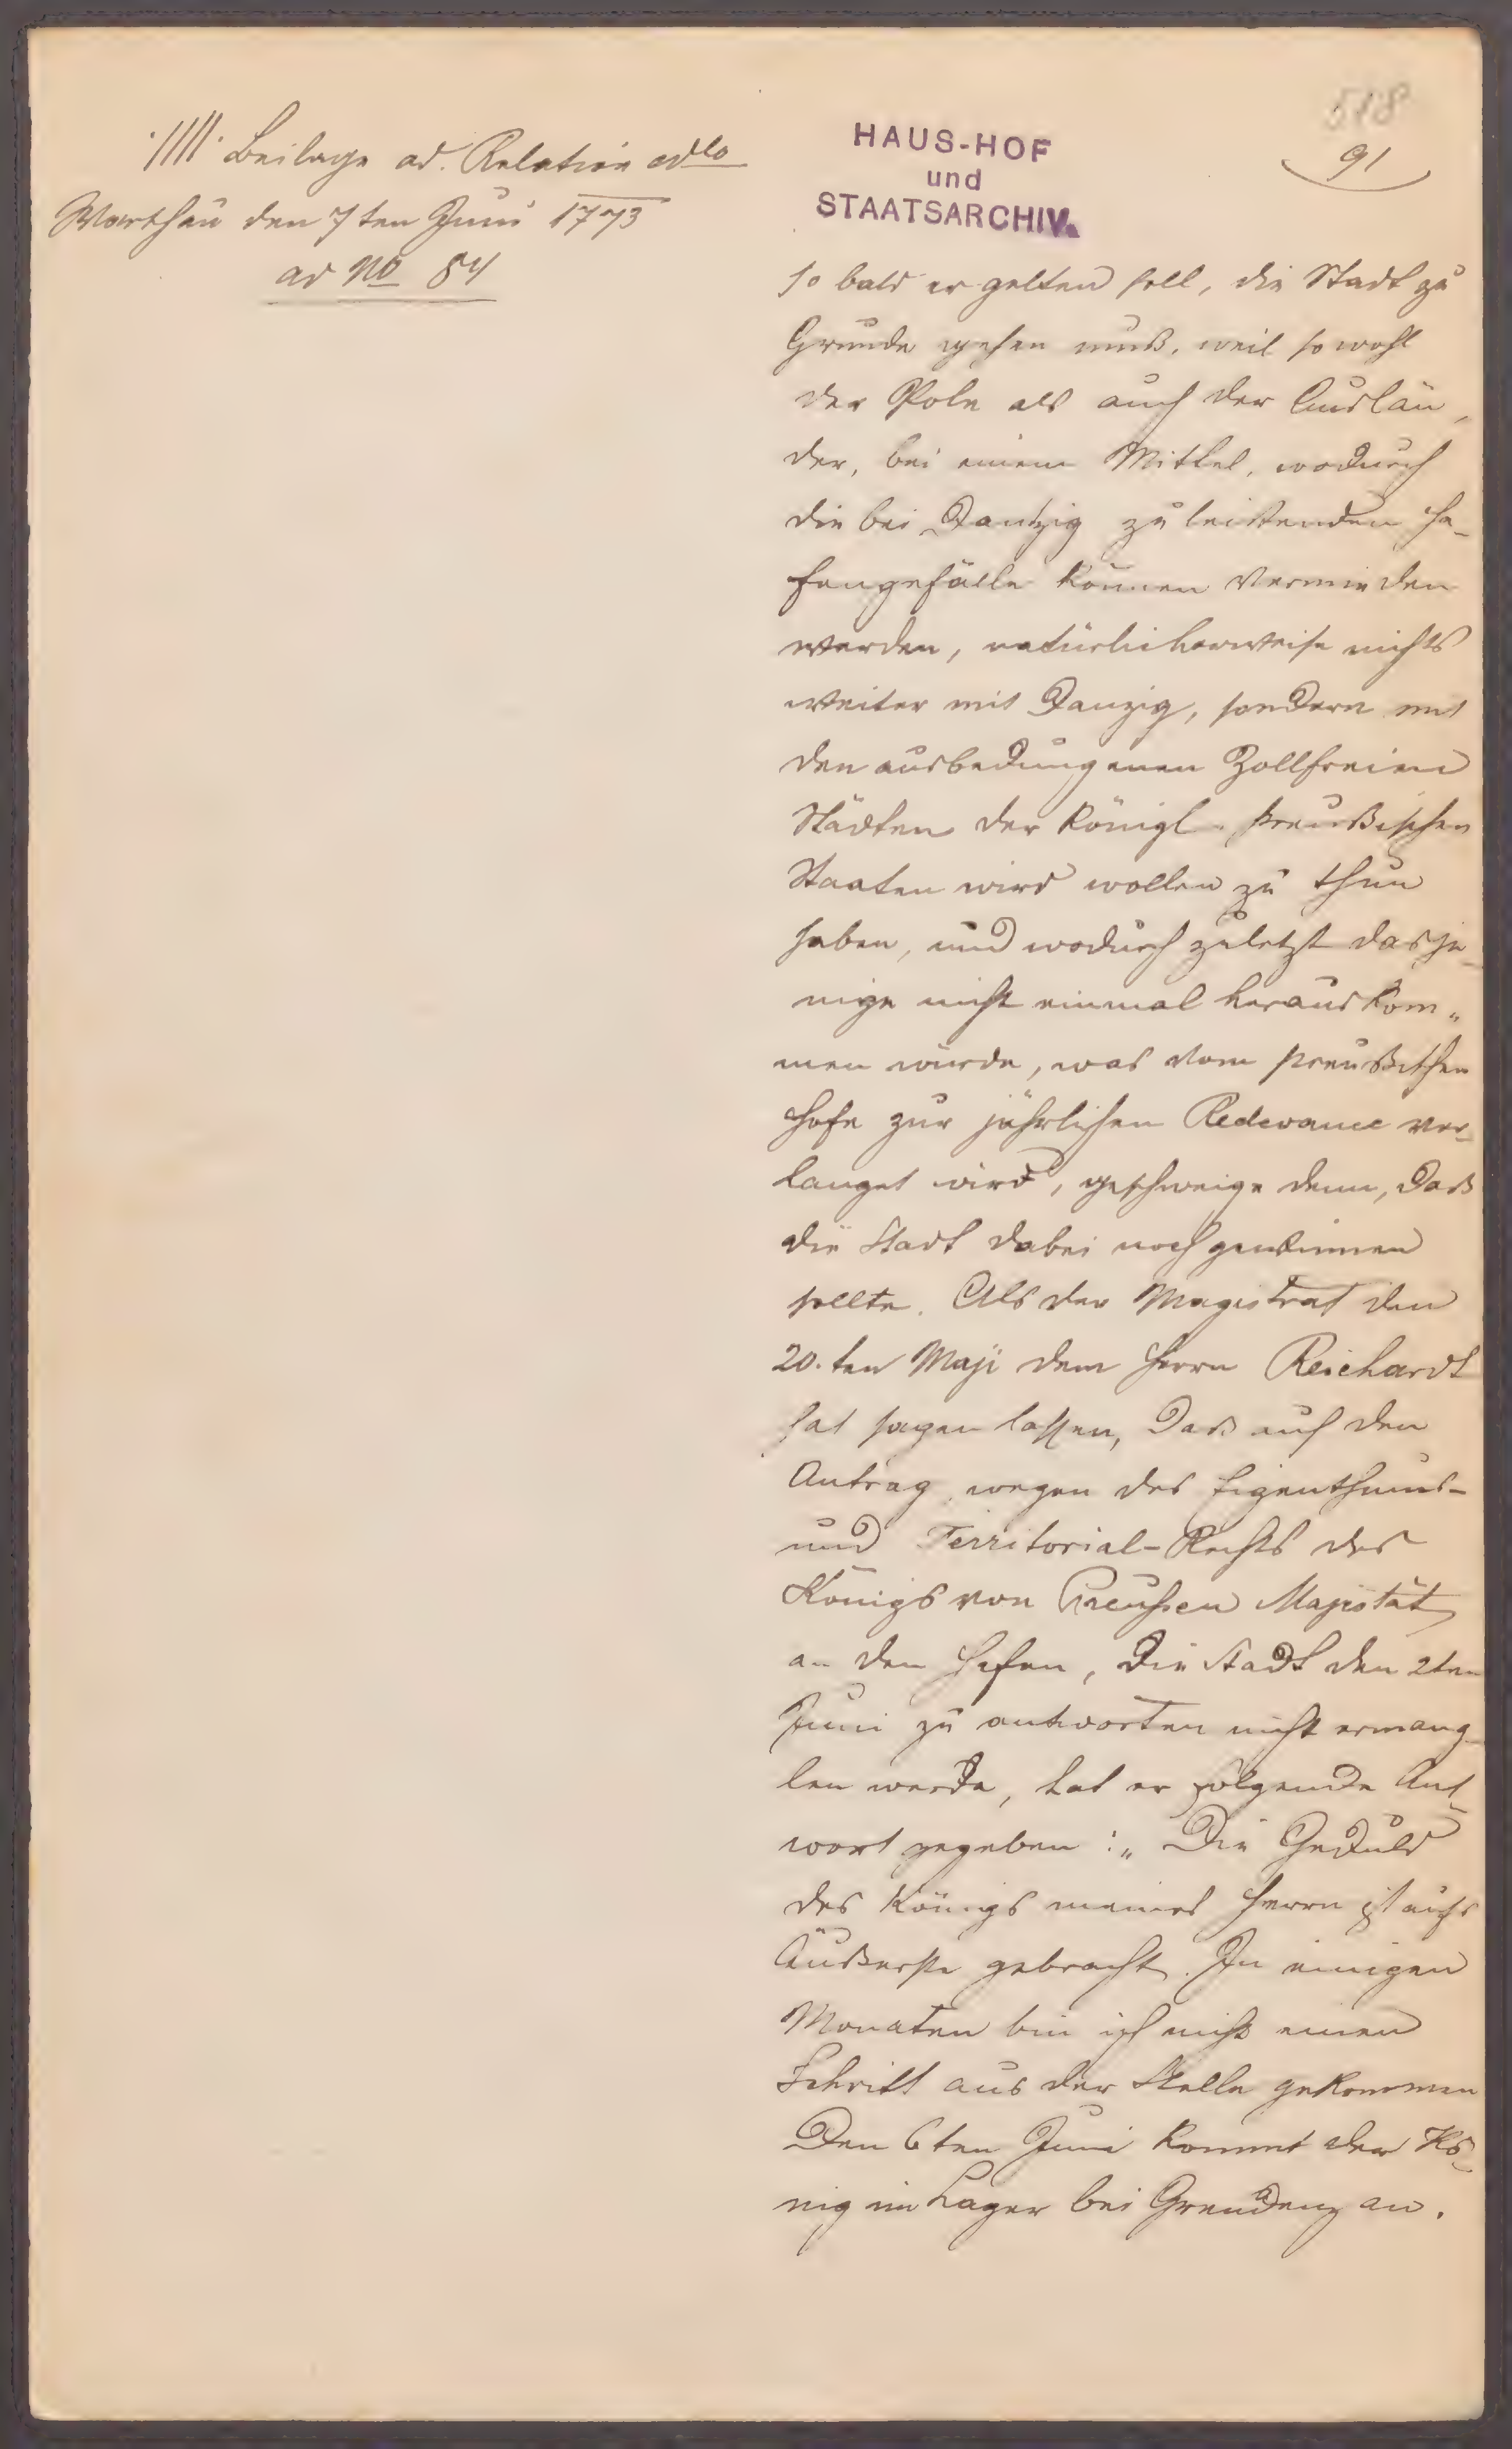 ·//// Beilage ad. Relation ddto
Warschau den 7ten Juni 1773
ad No 54
HAUS-HOF
und
STAATSARCHIV.
518
91
so bald er gelten soll, die Stadt zu
Grunde gehen muß, weil so wohl
der Pole als auch der Auslän„
der, bei einem Mittel, wodurch
die bei Dantzig zu leistenden Ha-
fengefälle können vermieden
werden, natürlicherweise nichts
weiter mit Danzig, sondern mit
den ausbedungenen Zollfreien
Städten der Königl. Preußischen
Staaten wird wollen zu thun
haben, und wodurch zuletzt dasje-
nige nicht einmal herauskom„
men würde, was vom preußischen
Hofe zur jährlichen Redevance ver-
langet wird, geschweige denn, daß
die Stadt dabei noch gewinnen
sollte. Als der Magistrat den
20.ten Maji dem Herrn Reichardt
hat sagen lassen, daß auf den
Antrag wegen des Eigenthums-
und Territorial-Rechts des
Königs von Preußen Majestät
an den Hafen, die Stadt den 2ten
Juni zu antworten nicht ermang-
len werde, hat er folgende Ant-
wort gegeben: „Die Geduld
des Königs meines Herrn ist aufs
Äußerste gebracht. In einigen
Monaten bin ich nicht einen
Schritt aus der Stelle gekommen
Den 6ten Juni kommt der Kö-
nig im Lager bei Graudenz an.